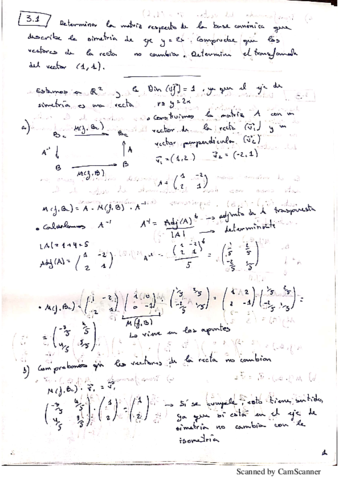 3.1 Determina la matriz respecto de la base canónica que
describe la simetría de eje y = 2x. Comprobar que los
vectores de la recta no cambian. Determina el transformado
del vector (1,1).
Estamos en R² y la Dim (Uf) = 1, ya que el eje de
simetría es una recta → y = 2x
a)
M(f, Bc)
Bc → Bc
A⁻¹ ↓ ↑ A
B → B
M(f, B)
• Construimos la matriz A con un
vector de la recta (v₁) y un
vector perpendicular (v₂)
v₁ = (1,2) v₂ = (-2,1)
A = (1 -2
2 1)
M(f, Bc) = A · M(f, B) · A⁻¹
• Calculamos A⁻¹ A⁻¹ = Adj(A)ᵗ / |A| → adjunta de A traspuesta
→ determinante
|A| = 1+4 = 5
Adj(A) = (1 -2
2 1)
A⁻¹ = (1 -2
2 1)ᵗ / 5 = (1/5 2/5
-2/5 1/5)
• M(f, Bc) = (1 -2
2 1) (1 0
0 -1) (1/5 2/5
-2/5 1/5) = (1 2
2 -1) (1/5 2/5
-2/5 1/5) =
M(f, B)
↳ Lo viene en los apuntes
= (-3/5 4/5
4/5 3/5)
b) Comprobamos si los vectores de la recta no cambian
M(f, Bc) · v₁ = v₁
(-3/5 4/5
4/5 3/5) · (1
2) = (1
2)
→ Sí se cumple, esto tiene sentido,
ya que si está en el eje de
simetría no cambia con la
isometría
Scanned by CamScanner